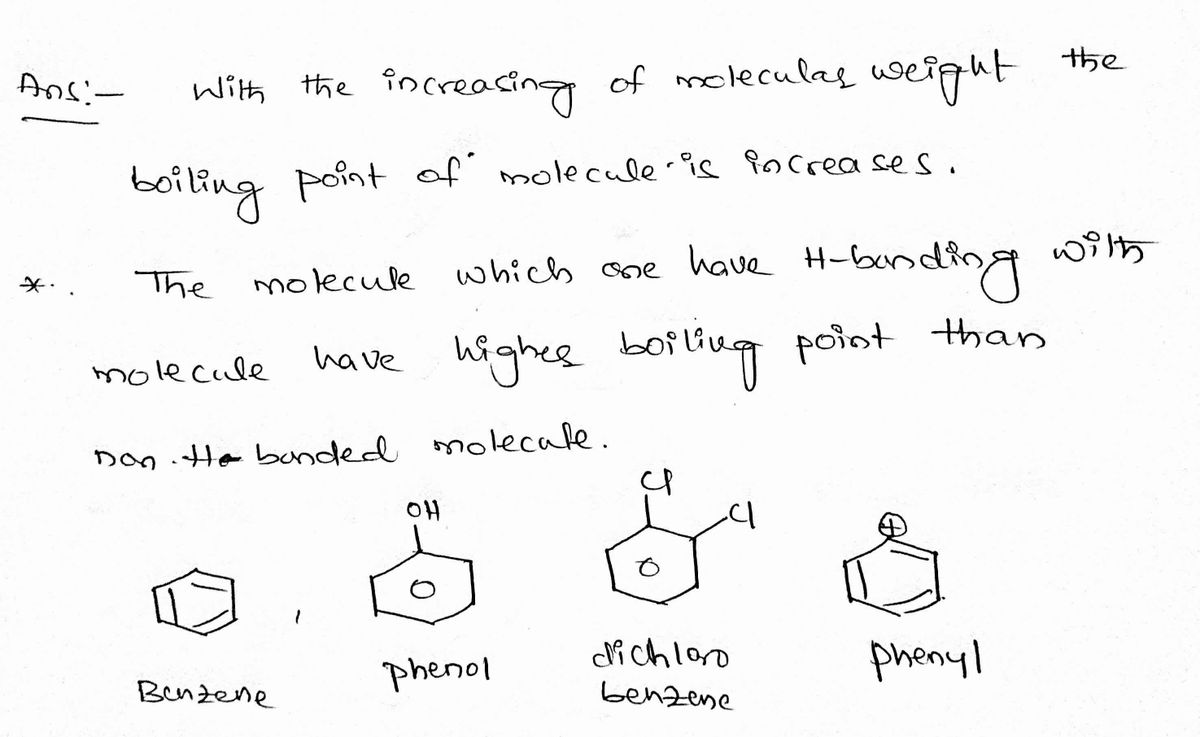 Ans:- With the increasing of molecular weight the
boiling point of molecule is increases.
*. The molecule which are have H-bonding with
molecule have higher boiling point than
non. H bonded molecule.
OH Cl Cl ⊕
Benzene , phenol dichloro benzene phenyl